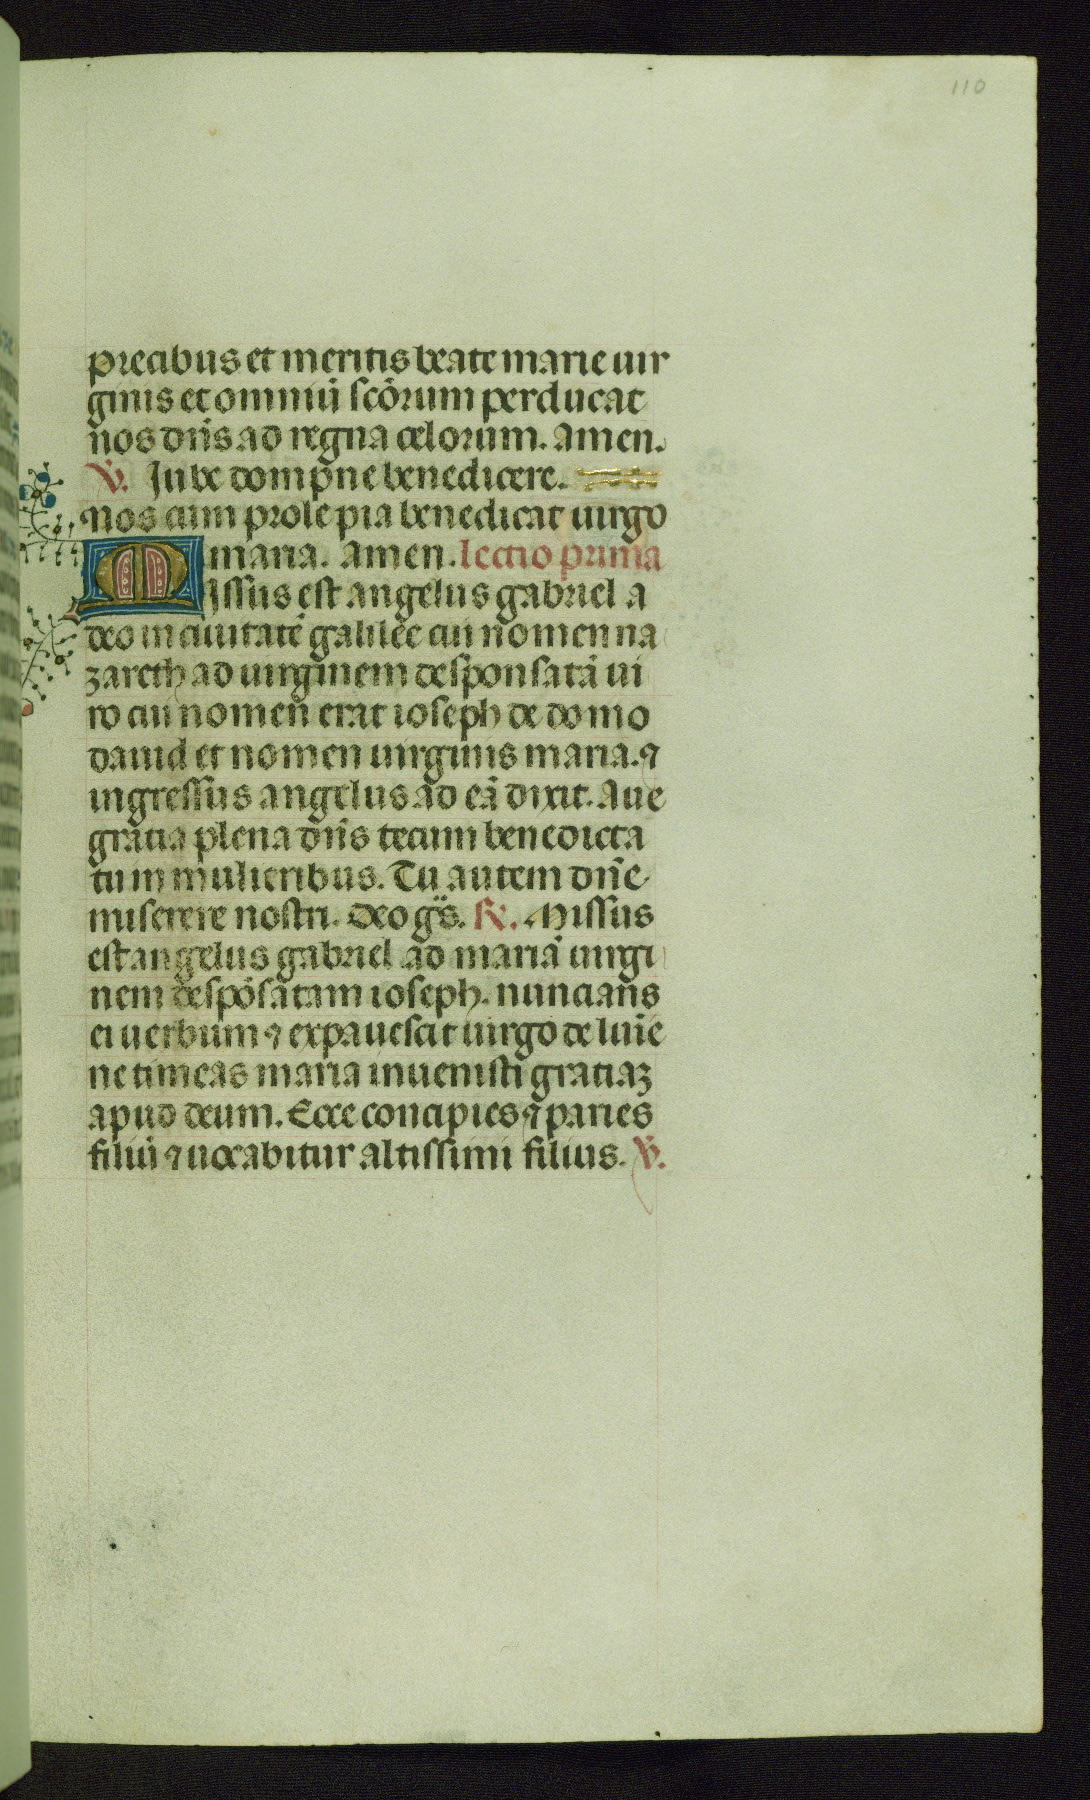 110
precibus et meritis beate marie uir
ginis et omniū scōrum perducat
nos dn̄s ad regna celorum. Amen.
V. Jube dompne benedicere.
Nos cum prole pia benedicat uirgo
maria. Amen. lectio prima
Missus est angelus gabriel a
deo in ciuitatē galilee cui nomen na
zareth ad uirginem desponsatā ui
ro cui nomen erat ioseph de domo
dauid et nomen uirginis maria. ⁊
ingressus angelus ad eā dixit. Aue
gratia plena dn̄s tecum benedicta
tu in mulieribus. Tu autem dn̄e
miserere nostri. Deo gr̄s. R. Missus
est angelus gabriel ad mariā uirgi
nem despōsatam ioseph. nuncians
ei uerbum ⁊ expauescit uirgo de lumīe
ne timeas maria inuenisti gratiaꝫ
apud deum. Ecce concipies ⁊ paries
filiū ⁊ uocabitur altissimi filius. V.